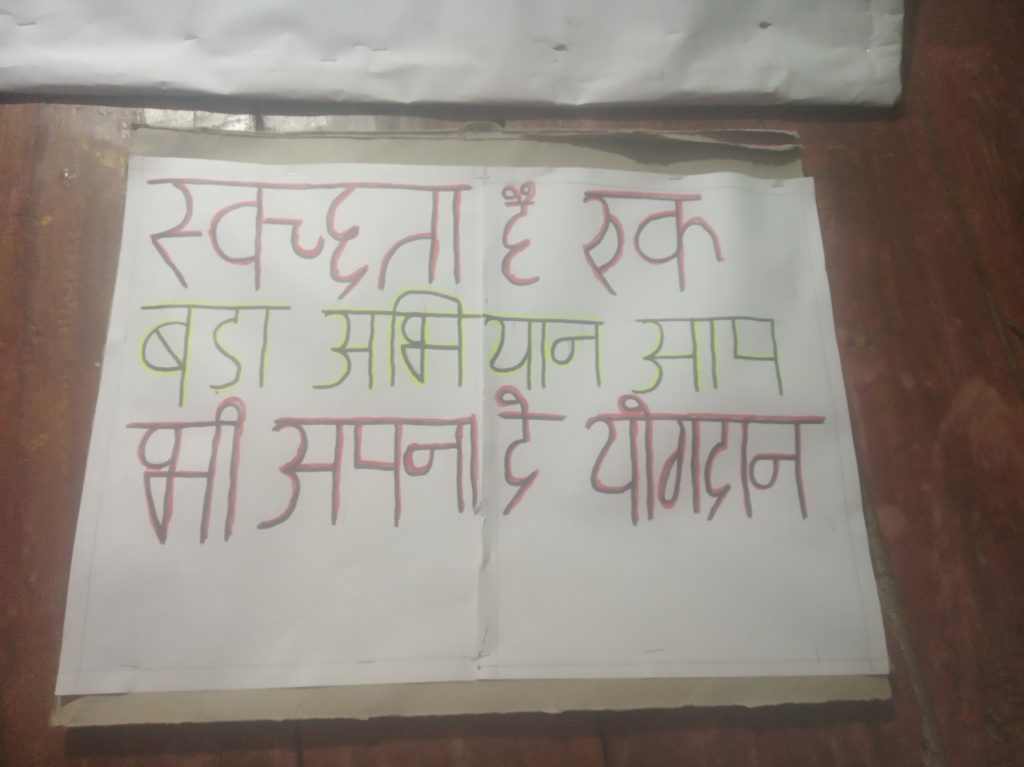 स्वच्छता हैं एक
बड़ा अभियान आप
भी अपना दे योगदान